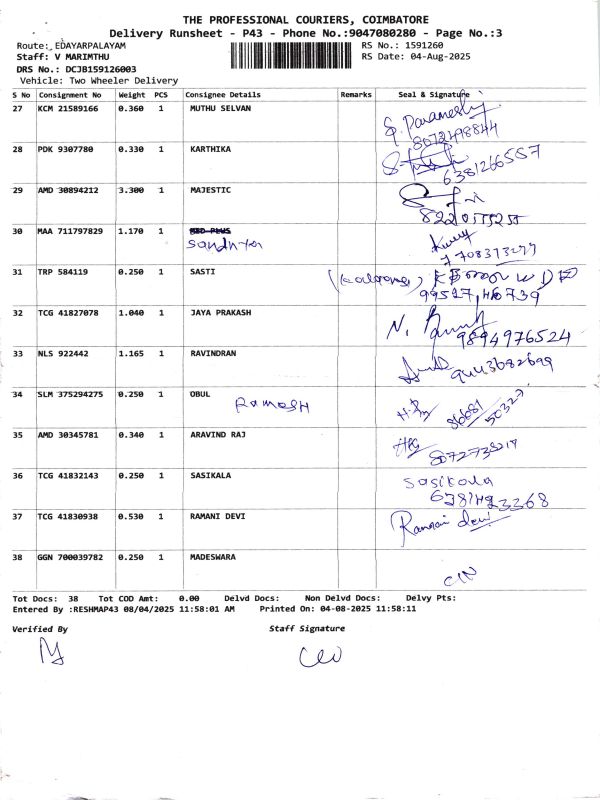 THE PROFESSIONAL COURIERS, COIMBATORE
Delivery Runsheet - P43 - Phone No.:9047080280 - Page No.:3
Route: EDAYARPALAYAM RS No.: 1591260
Staff: V MARIMTHU RS Date: 04-Aug-2025
DRS No.: DCJB159126003
Vehicle: Two Wheeler Delivery
S No Consignment No Weight PCS Consignee Details Remarks Seal & Signature
27 KCM 21589166 0.360 1 MUTHU SELVAN
8072498844
28 PDK 9307780 0.330 1 KARTHIKA
6381266557
29 AMD 30894212 3.300 1 MAJESTIC
30 MAA 711797829 1.170 1
31 TRP 584119 0.250 1 SASTI
32 TCG 41827078 1.040 1 JAYA PRAKASH
9894976524
33 NLS 922442 1.165 1 RAVINDRAN
9443682699
34 SLM 375294275 0.250 1 OBUL
Ramesh
35 AMD 30345781 0.340 1 ARAVIND RAJ
36 TCG 41832143 0.250 1 SASIKALA
Sasikala
37 TCG 41830938 0.530 1 RAMANI DEVI
Ramani devi
38 GGN 700039782 0.250 1 MADESWARA
Tot Docs: 38 Tot COD Amt: 0.00 Delvd Docs: Non Delvd Docs: Delvy Pts:
Entered By :RESHMAP43 08/04/2025 11:58:01 AM Printed On: 04-08-2025 11:58:11
Verified By Staff Signature